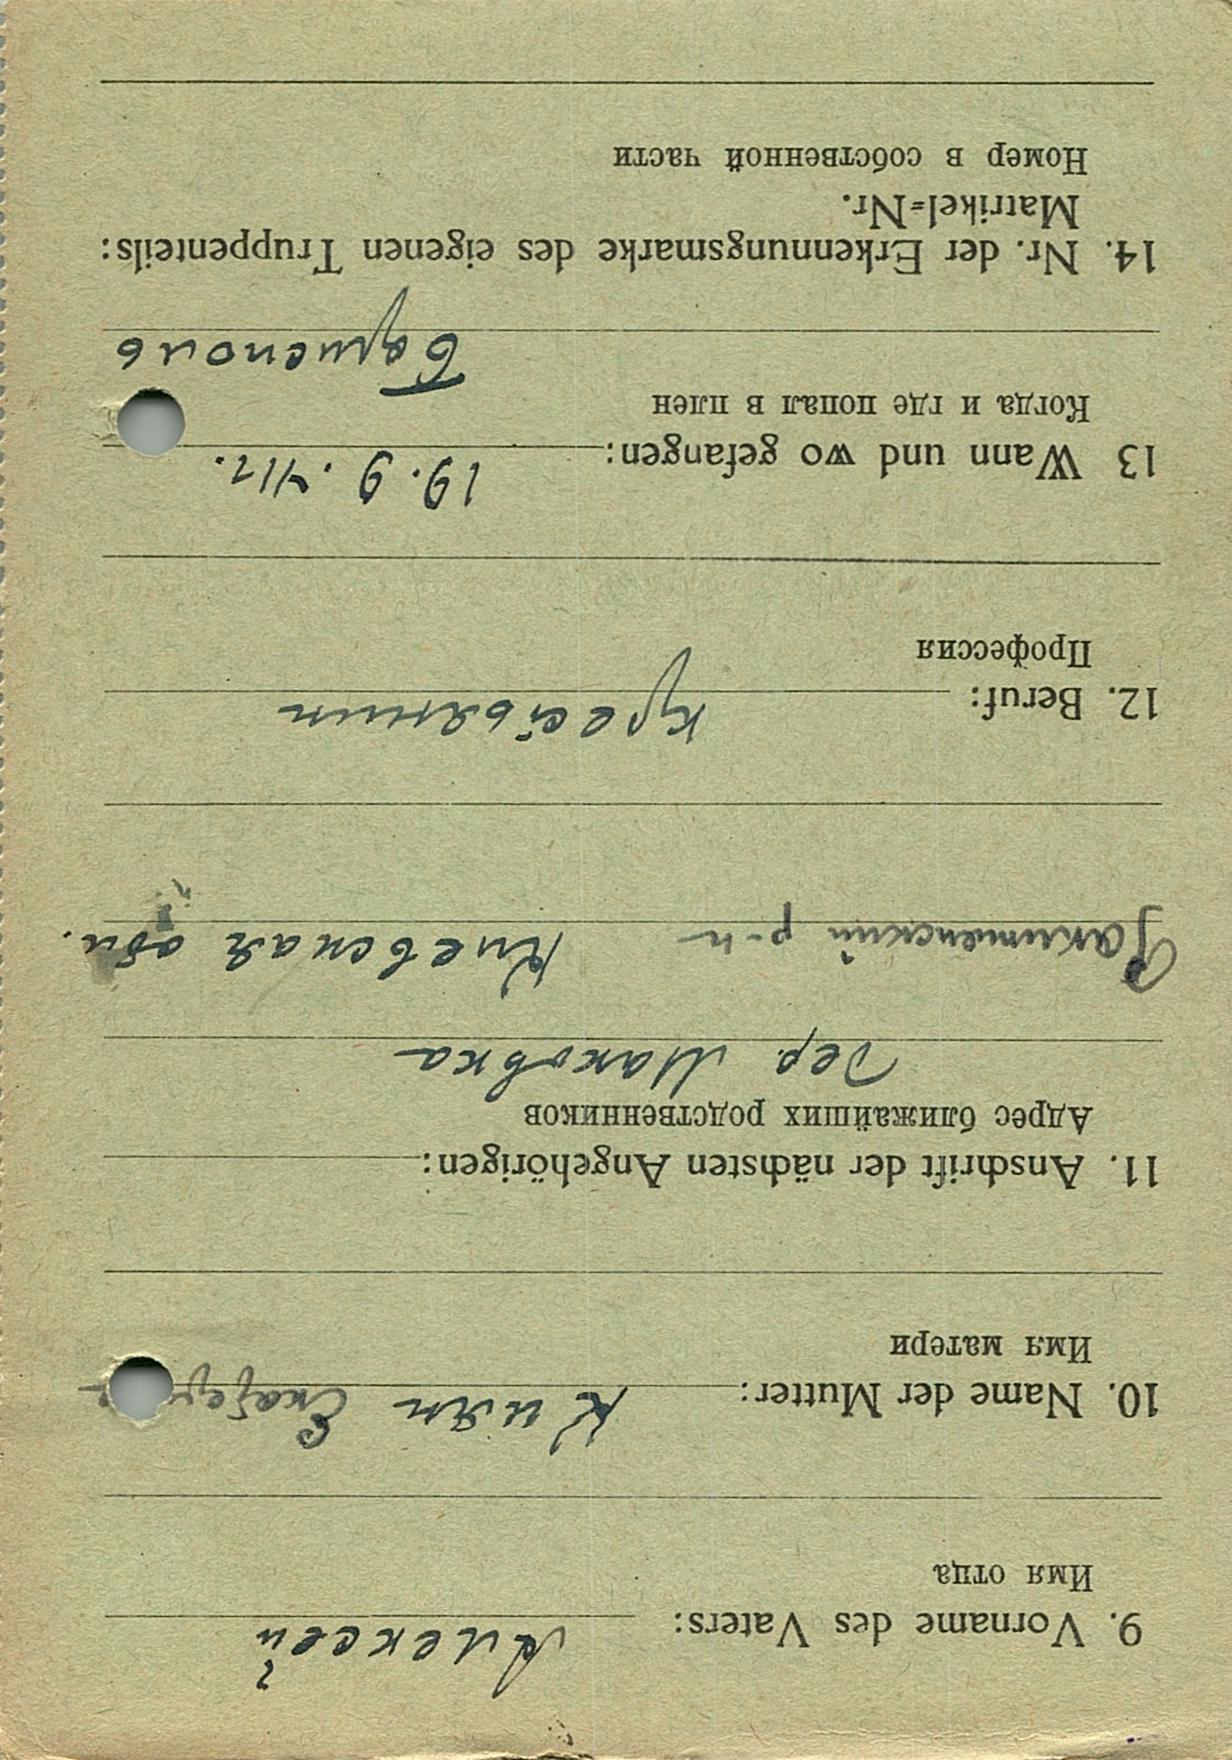 9. Vorname des Vaters: Алексей
Имя отца
10. Name der Mutter: Киян
Имя матери
11. Anschrift der nächsten Angehörigen:
Адрес ближайших родственников
дер. Маковка
р-н Киевская обл.
12. Beruf: крестьянин
Профессия
13 Wann und wo gefangen: 19.9.41г.
Когда и где попал в плен
Борисполь
14. Nr. der Erkennungsmarke des eigenen Truppenteils:
Matrikel=Nr.
Номер в собственной части